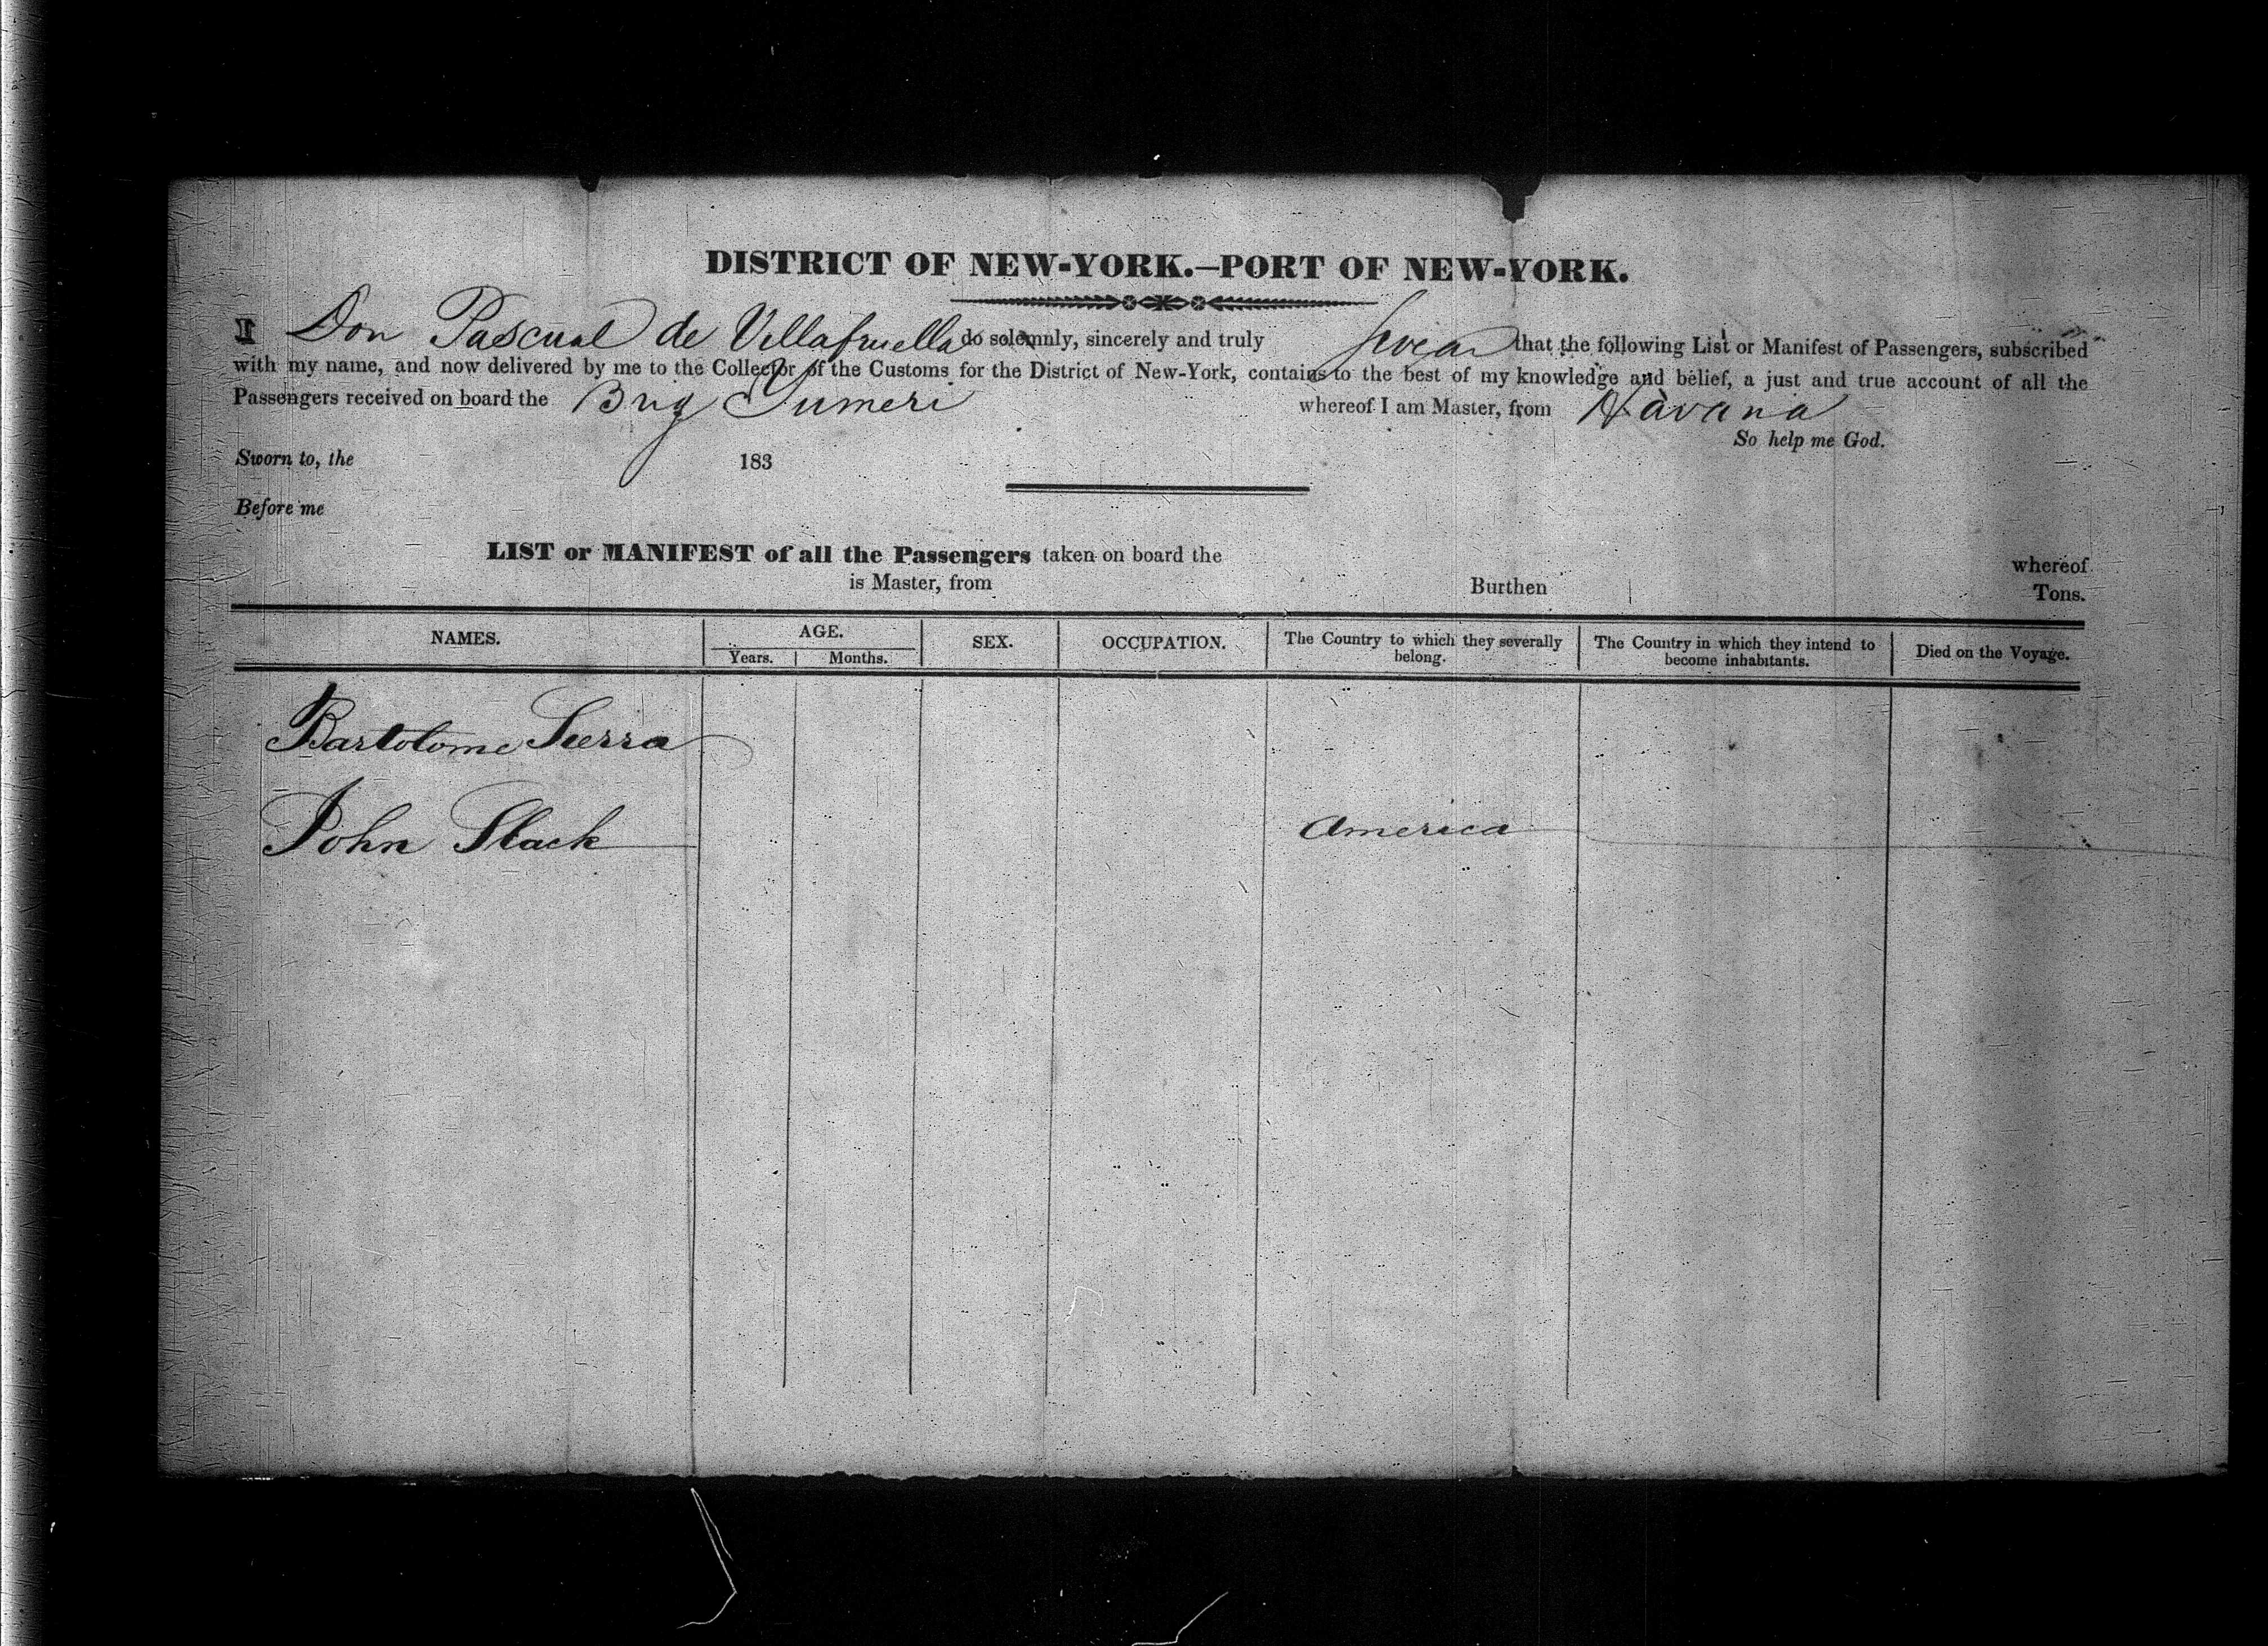 DISTRICT OF NEW-YORK.—PORT OF NEW-YORK.
I Don Pascual de Villafruella do solemnly, sincerely and truly swear that the following List or Manifest of Passengers, subscribed
with my name, and now delivered by me to the Collector of the Customs for the District of New-York, contains to the best of my knowledge and belief, a just and true account of all the
Passengers received on board the Brig Yumeri whereof I am Master, from Havana
So help me God.
Sworn to, the 183
Before me
LIST or MANIFEST of all the Passengers taken on board the whereof
is Master, from Burthen Tons.
NAMES. AGE. SEX. OCCUPATION. The Country to which they severally belong. The Country in which they intend to become inhabitants. Died on the Voyage.
Years. Months.
Bartolome Sierra
John Slack America